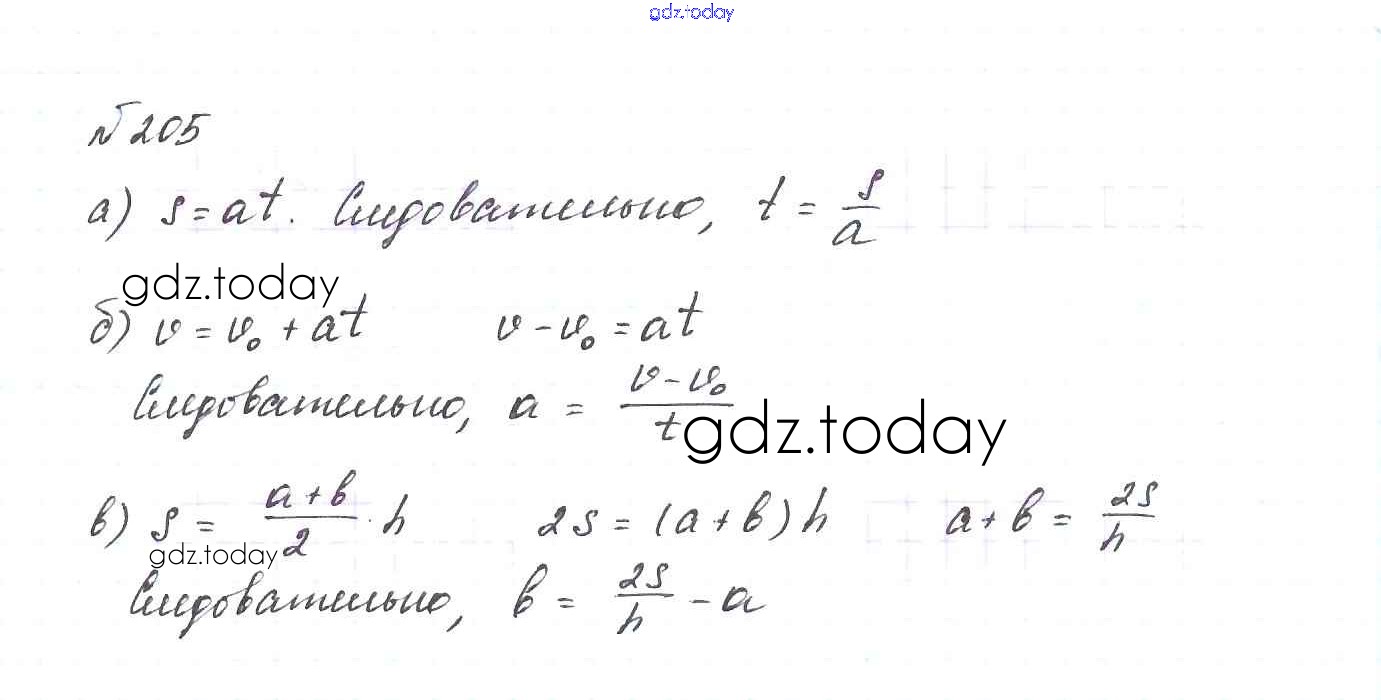 gdz.today
№205
а) s = at. Следовательно, t = s/a
gdz.today
б) v = v₀ + at v - v₀ = at
Следовательно, a = (v - v₀)/t
gdz.today
в) s = (a + b)/2 · h 2s = (a + b) h a + b = 2s/h
gdz.today
Следовательно, b = 2s/h - a